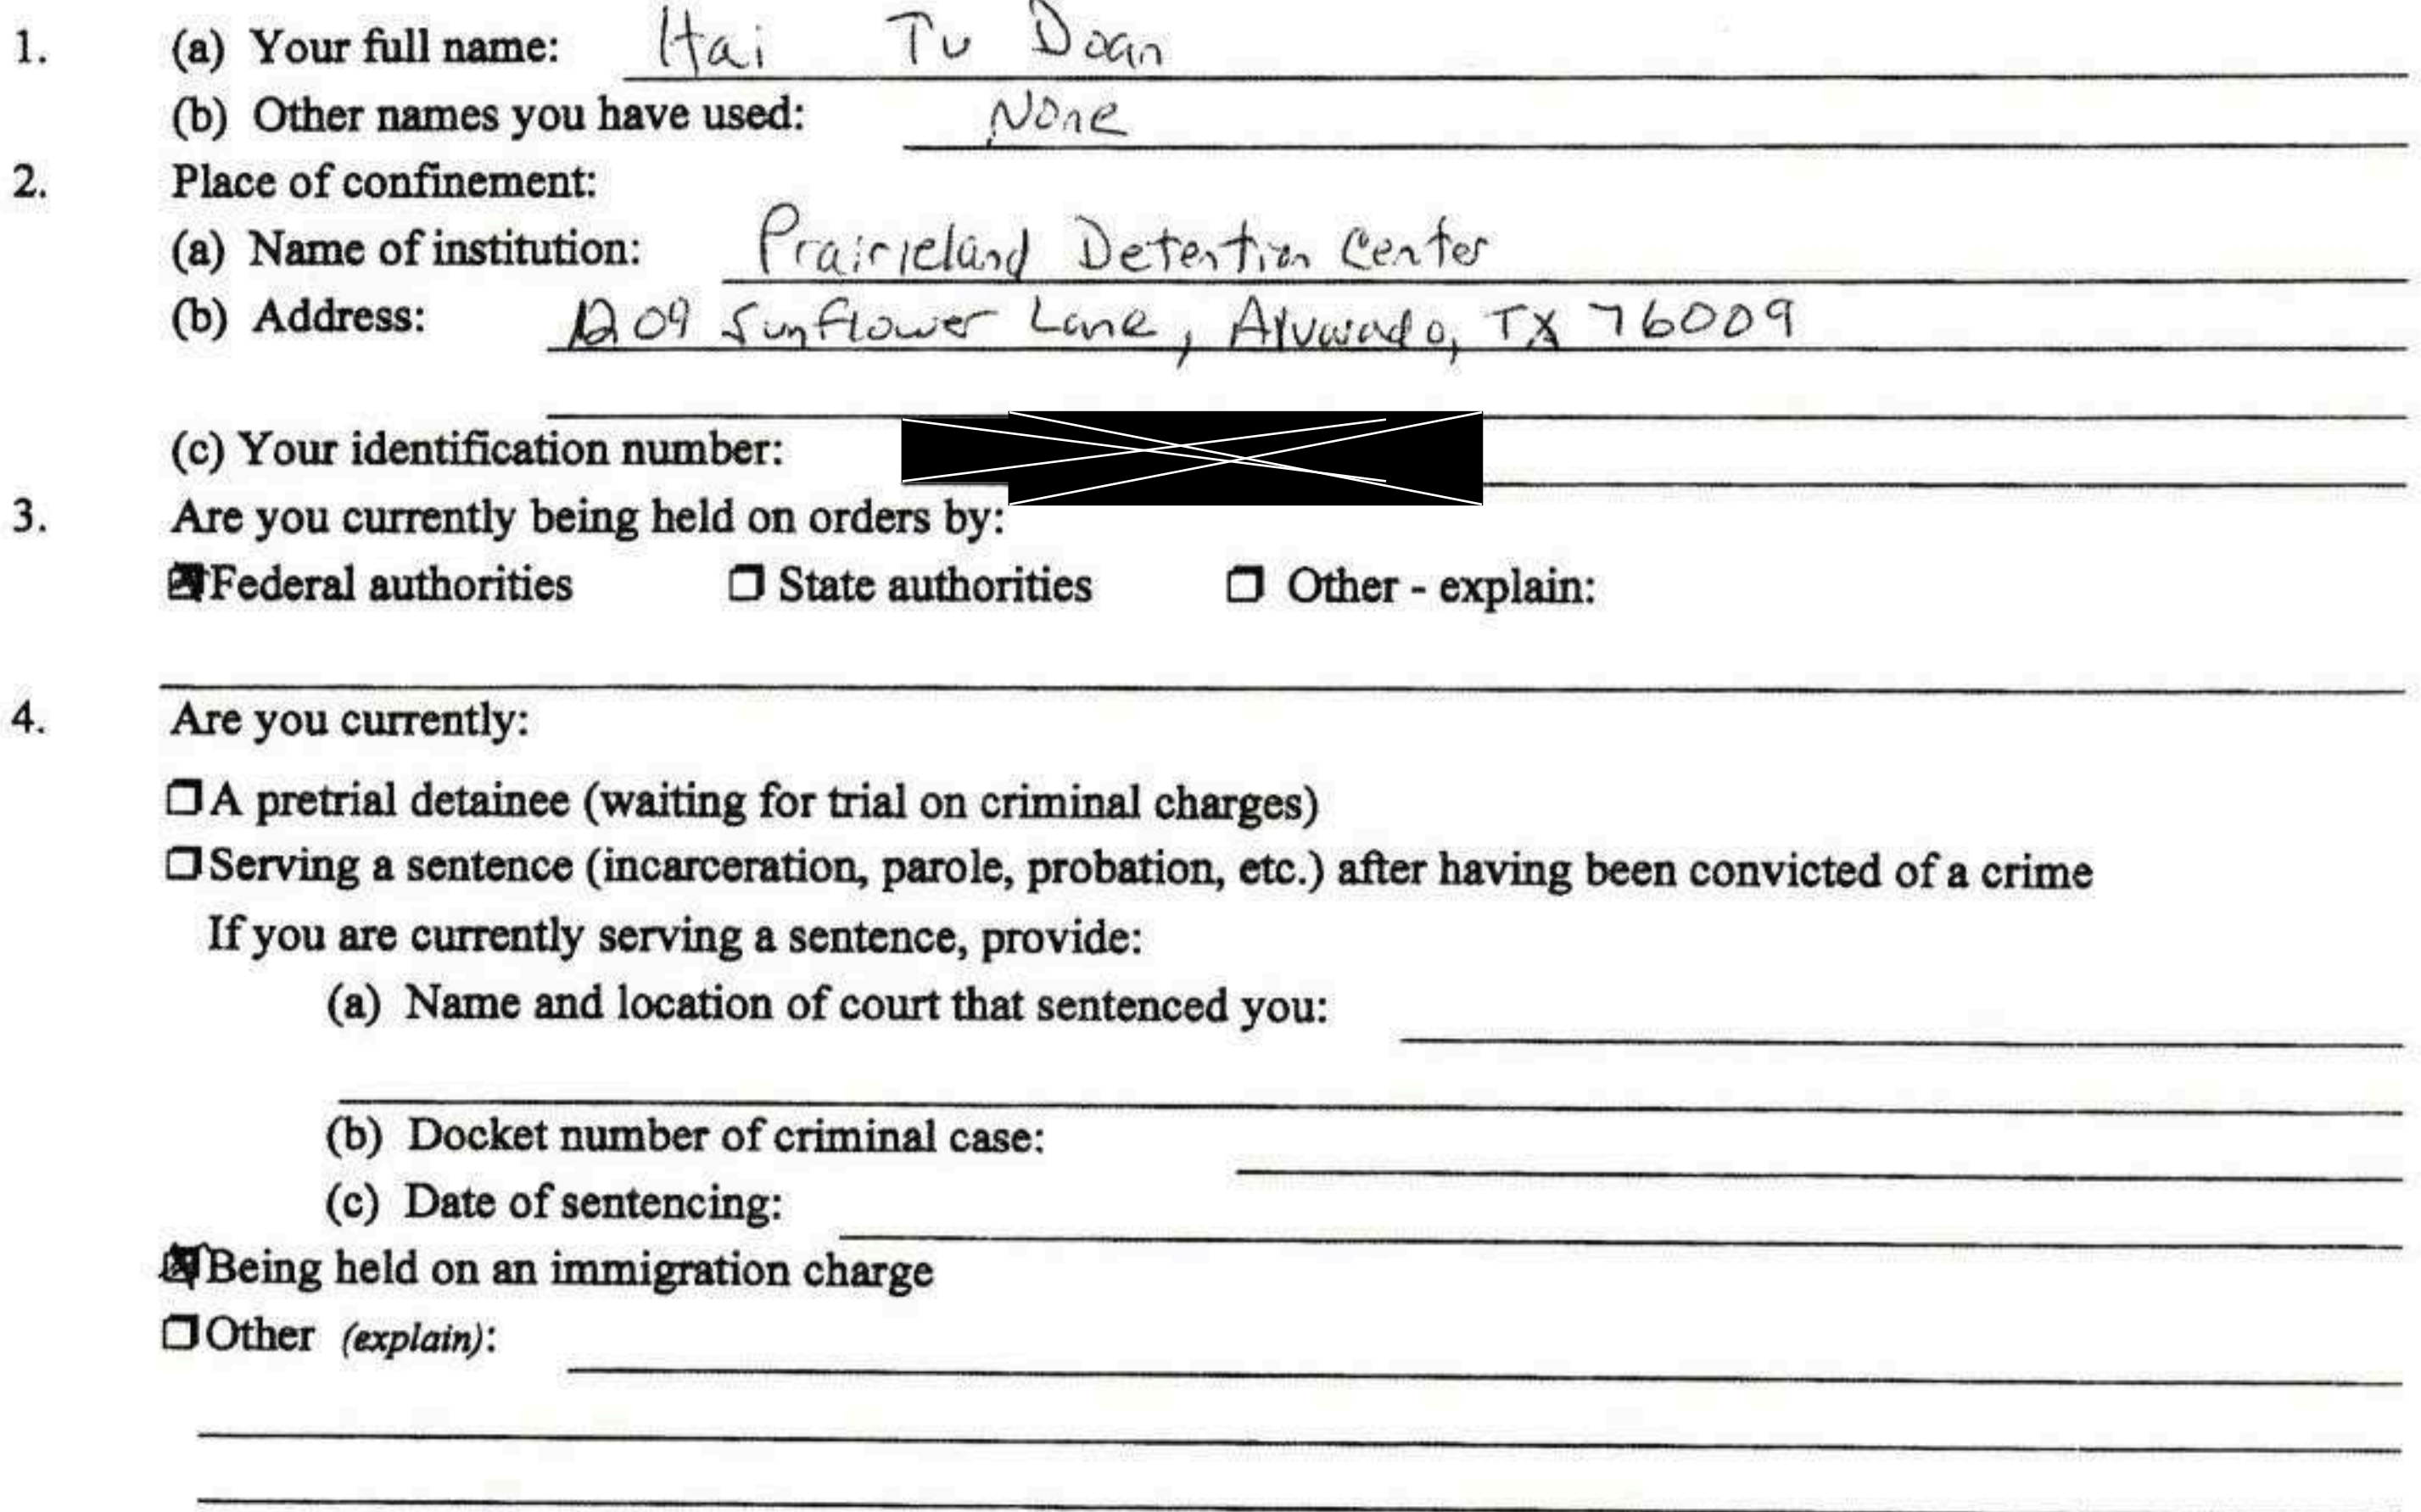 1. (a) Your full name: Hai Tu Doan
(b) Other names you have used: None
2. Place of confinement:
(a) Name of institution: Prairieland Detention Center
(b) Address: 1209 Sunflower Lane, Alvarado, TX 76009
(c) Your identification number:
3. Are you currently being held on orders by:
☒ Federal authorities ☐ State authorities ☐ Other - explain:
4. Are you currently:
☐ A pretrial detainee (waiting for trial on criminal charges)
☐ Serving a sentence (incarceration, parole, probation, etc.) after having been convicted of a crime
If you are currently serving a sentence, provide:
(a) Name and location of court that sentenced you:
(b) Docket number of criminal case:
(c) Date of sentencing:
☒ Being held on an immigration charge
☐ Other (explain):